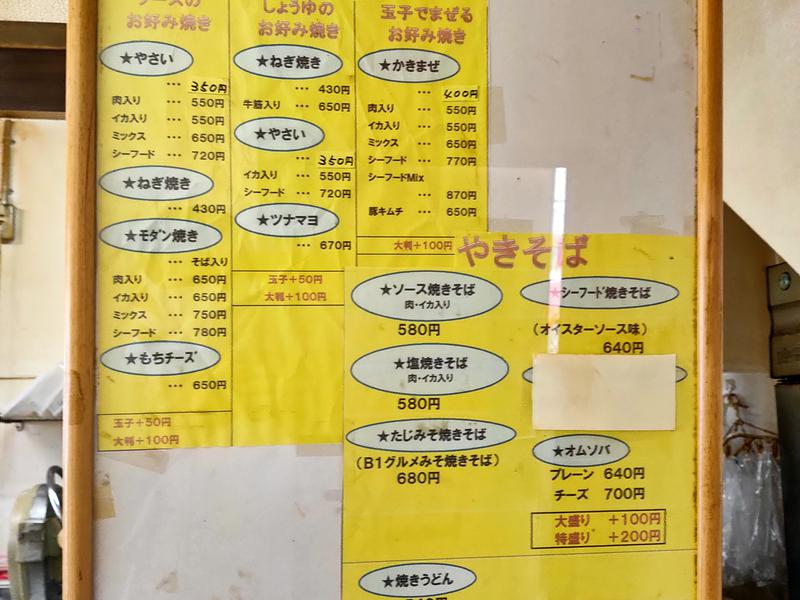 ソースの
お好み焼き
★やさい
… 350円
肉入り … 550円
イカ入り … 550円
ミックス … 650円
シーフード … 720円
★ねぎ焼き
… 430円
★モダン焼き
… そば入り
肉入り … 650円
イカ入り … 650円
ミックス … 750円
シーフード … 780円
★もちチーズ
… 650円
玉子+50円
大判+100円
しょうゆの
お好み焼き
★ねぎ焼き
… 430円
牛筋入り … 650円
★やさい
… 350円
イカ入り … 550円
シーフード … 720円
★ツナマヨ
… 670円
玉子+50円
大判+100円
玉子でまぜる
お好み焼き
★かきまぜ
… 400円
肉入り … 550円
イカ入り … 550円
ミックス … 650円
シーフード … 770円
シーフードMix
… 870円
豚キムチ … 650円
大判+100円
やきそば
★ソース焼きそば
肉・イカ入り
580円
★塩焼きそば
肉・イカ入り
580円
★たじみそ焼きそば
(B1グルメみそ焼きそば)
680円
★シーフード焼きそば
(オイスターソース味)
640円
★オムソバ
プレーン 640円
チーズ 700円
大盛り +100円
特盛り +200円
★焼きうどん